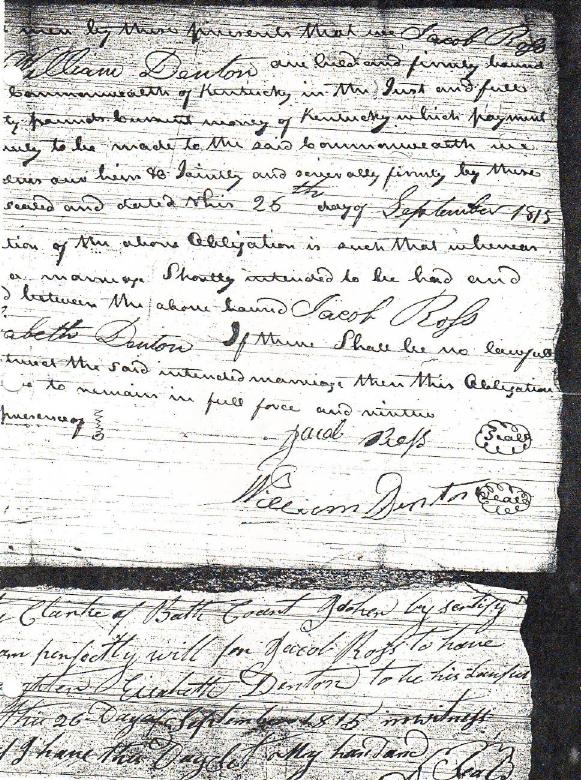 men by these presents that we Jacob Ross
William Denton are held and firmly bound
Commonwealth of Kentucky in the Just and full
ty pounds Current money of Kentucky which payment
to be made to the said Commonwealth we
our heirs &c Jointly and severally firmly by these
sealed and dated this 26th day of September 1815
tion of the above Obligation is such that whereas
a marriage Shortly intended to be had and
d between the above bound Jacob Ross
abeth Denton If there Shall be no lawfull
the said intended marriage then this Obligation
to remain in full force and
presence of
Jacob Ross Seal
William Denton Seal
Clarke of Bath Count by sertify
am perfectly will for Jacob Ross to have
Denton to be his Lawful
the 26 Day of September 1815 in witness
I have this Day Set My hand and
Seal